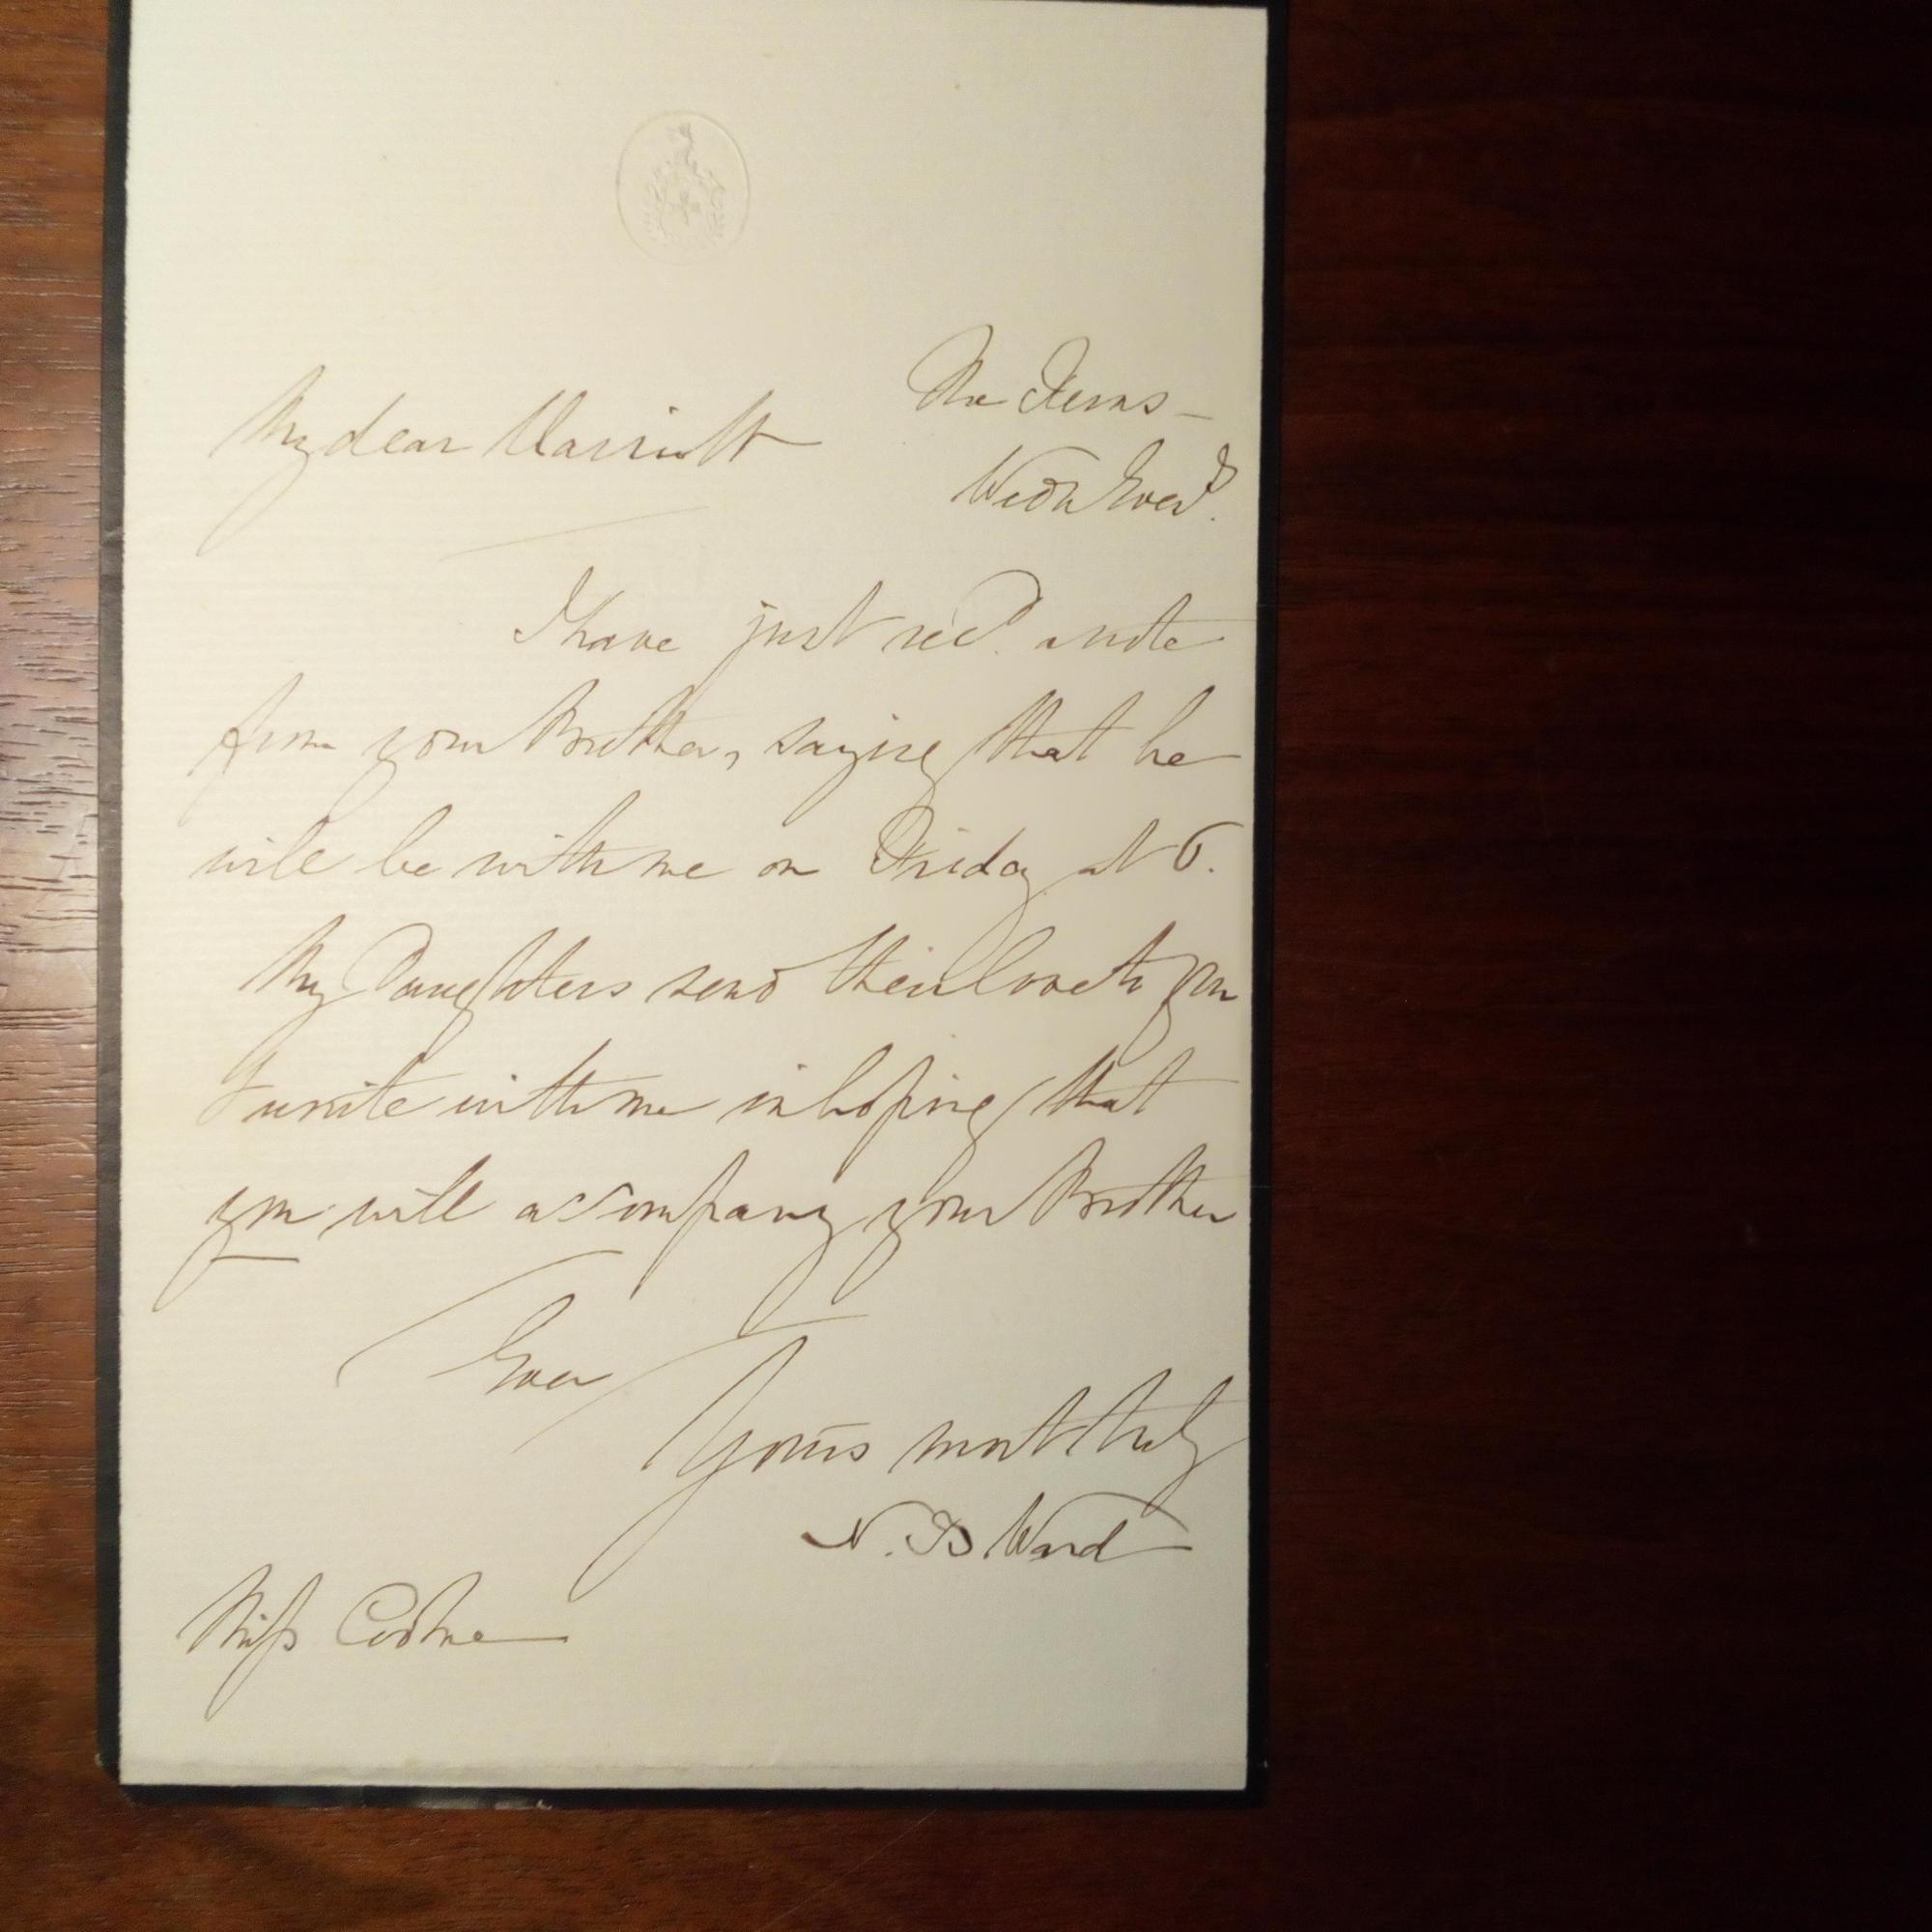 The Ferns –
My dear Harriett
Wedn Eveg.
I have just recd. a note
from your Brother, saying that he
will be with me on Friday at 6.
My Daughters send their love to you
& unite with me in hoping that
you will accompany your Brother
Ever
Yours most truly
N. B Ward
Miss Cooke